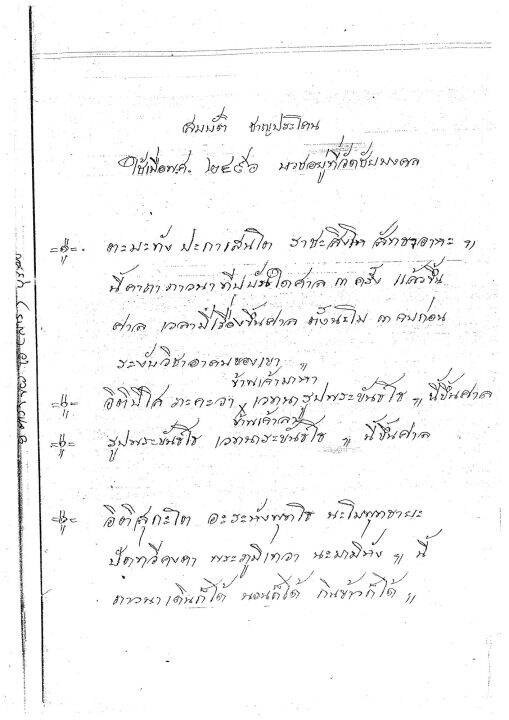 สมบัติ ชาญประโคน
ใช้เมื่อพศ. ๒๔๙๖ บวชอยู่ที่วัดชัยมงคล
ตะมะทัง ปะกาเสนโต ราชะสิงโห สัทธาอาหะ ฯ
นี้คาถาภาวนาที่ปบันไดศาล ๓ ครั้ง แล้วขึ้น
ศาล เวลามีเรื่องขึ้นศาล ตั้งนะโม ๓ จบก่อน
ระงับวิชาอาคมของเขา ฯ
ข้าพเจ้ามาหา
อิติปิโส ภะคะวา เวทนา รูปพระขันธ์โธ ฯ นี้ขึ้นศาล
ข้าพเจ้า
รูปพระขันธ์โธ เวทนาระขันธ์โธ ฯ นี้ขึ้นศาล
อิติสุกะโต อะระหังพุทโธ นะโมพุทธายะ
ปัถทวีคงคา พระภูมิเทวา นะมามิหัง ฯ นี้
ภาวนาเดินก็ได้ นอนก็ได้ กินข้าวก็ได้ ฯ